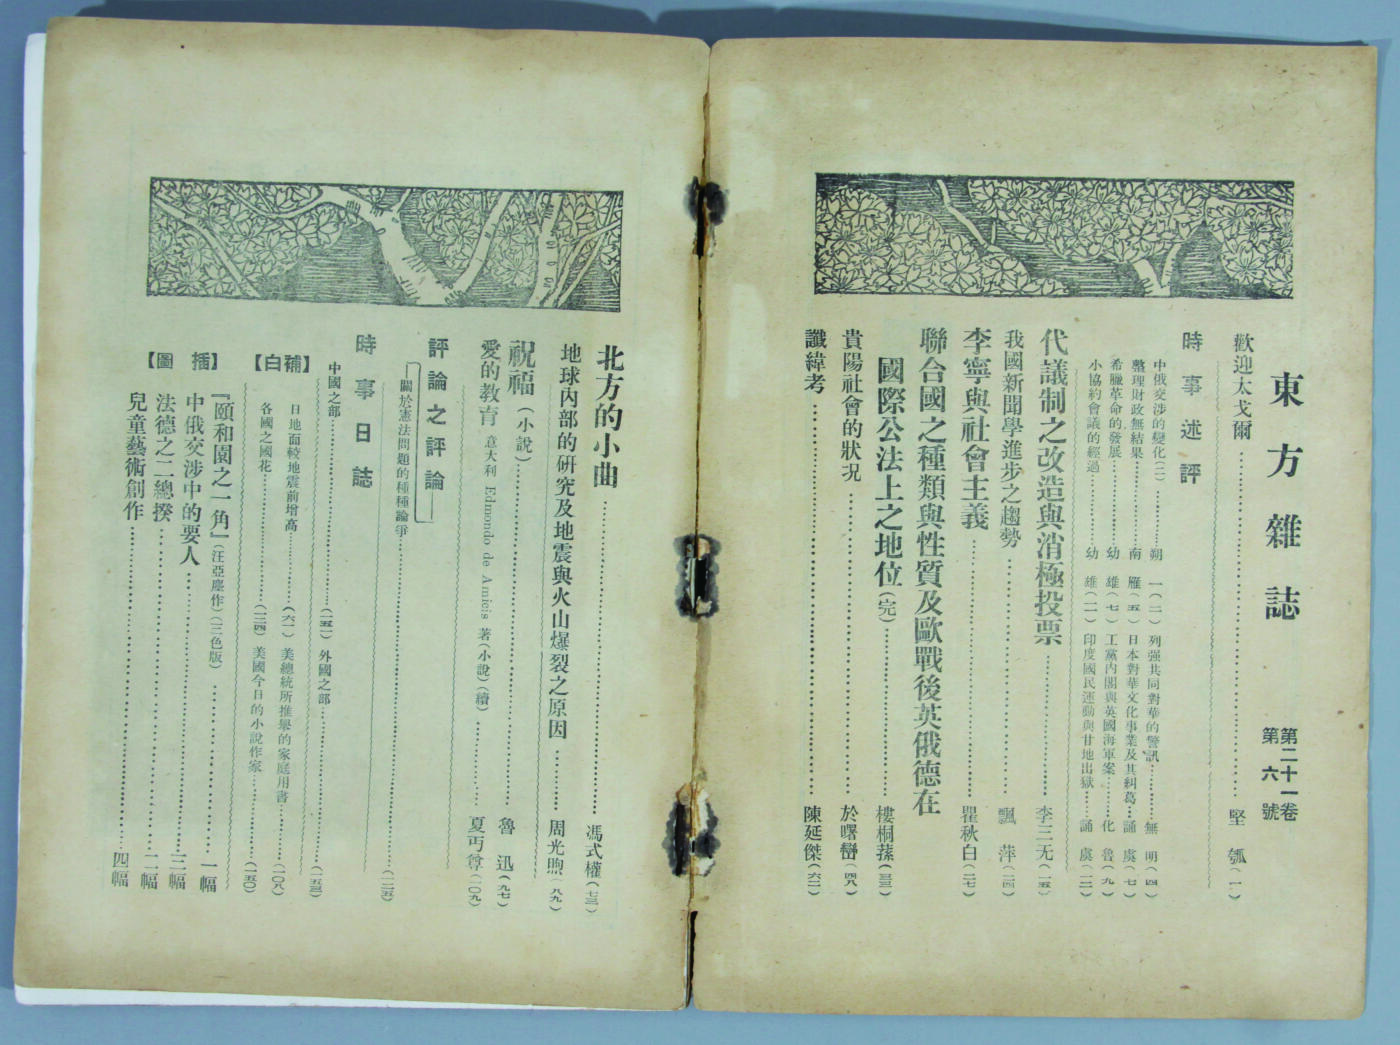 東方雜誌
第二十一卷
第六號
歡迎太戈爾……堅瓠(一)
時事述評
中俄交涉的變化(二)……朔一(二) 列强共同對華的警訊……無明(四)
整理財政無結果……南雁(五) 日本對華文化事業及其糾葛…誦虞(七)
希臘革命的發展……幼雄(七) 工黨內閣與英國海軍案……化魯(九)
小協約會議的經過……幼雄(一一) 印度國民運動與甘地出獄……誦虞(一二)
代議制之改造與消極投票……李三无(一五)
我國新聞學進步之趨勢……飄萍(二四)
李寧與社會主義……瞿秋白(二七)
聯合國之種類與性質及歐戰後英俄德在
國際公法上之地位(完)……樓桐蓀(三三)
貴陽社會的狀況……於曙巒(四八)
讖緯考……陳延傑(六二)
北方的小曲……馮式權(七三)
地球內部的研究及地震與火山爆裂之原因……周光煦(八九)
祝福(小說)……魯迅(九七)
愛的教育 意大利 Edmondo de Amicis 著(小說)(續)……夏丏尊(一〇九)
評論之評論
關於憲法問題的種種論爭……(一二五)
時事日誌
中國之部……(一五一) 外國之部……(一五三)
【補白】
日地面較地震前增高……(六一) 美總統所推舉的家庭用書……(一〇八)
各國之國花……(一二四) 美國今日的小說作家……(一五〇)
【插圖】
『頤和園之一角』(汪亞塵作)(三色版)……一幅
中俄交涉中的要人……三幅
法德之二總揆……二幅
兒童藝術創作……四幅